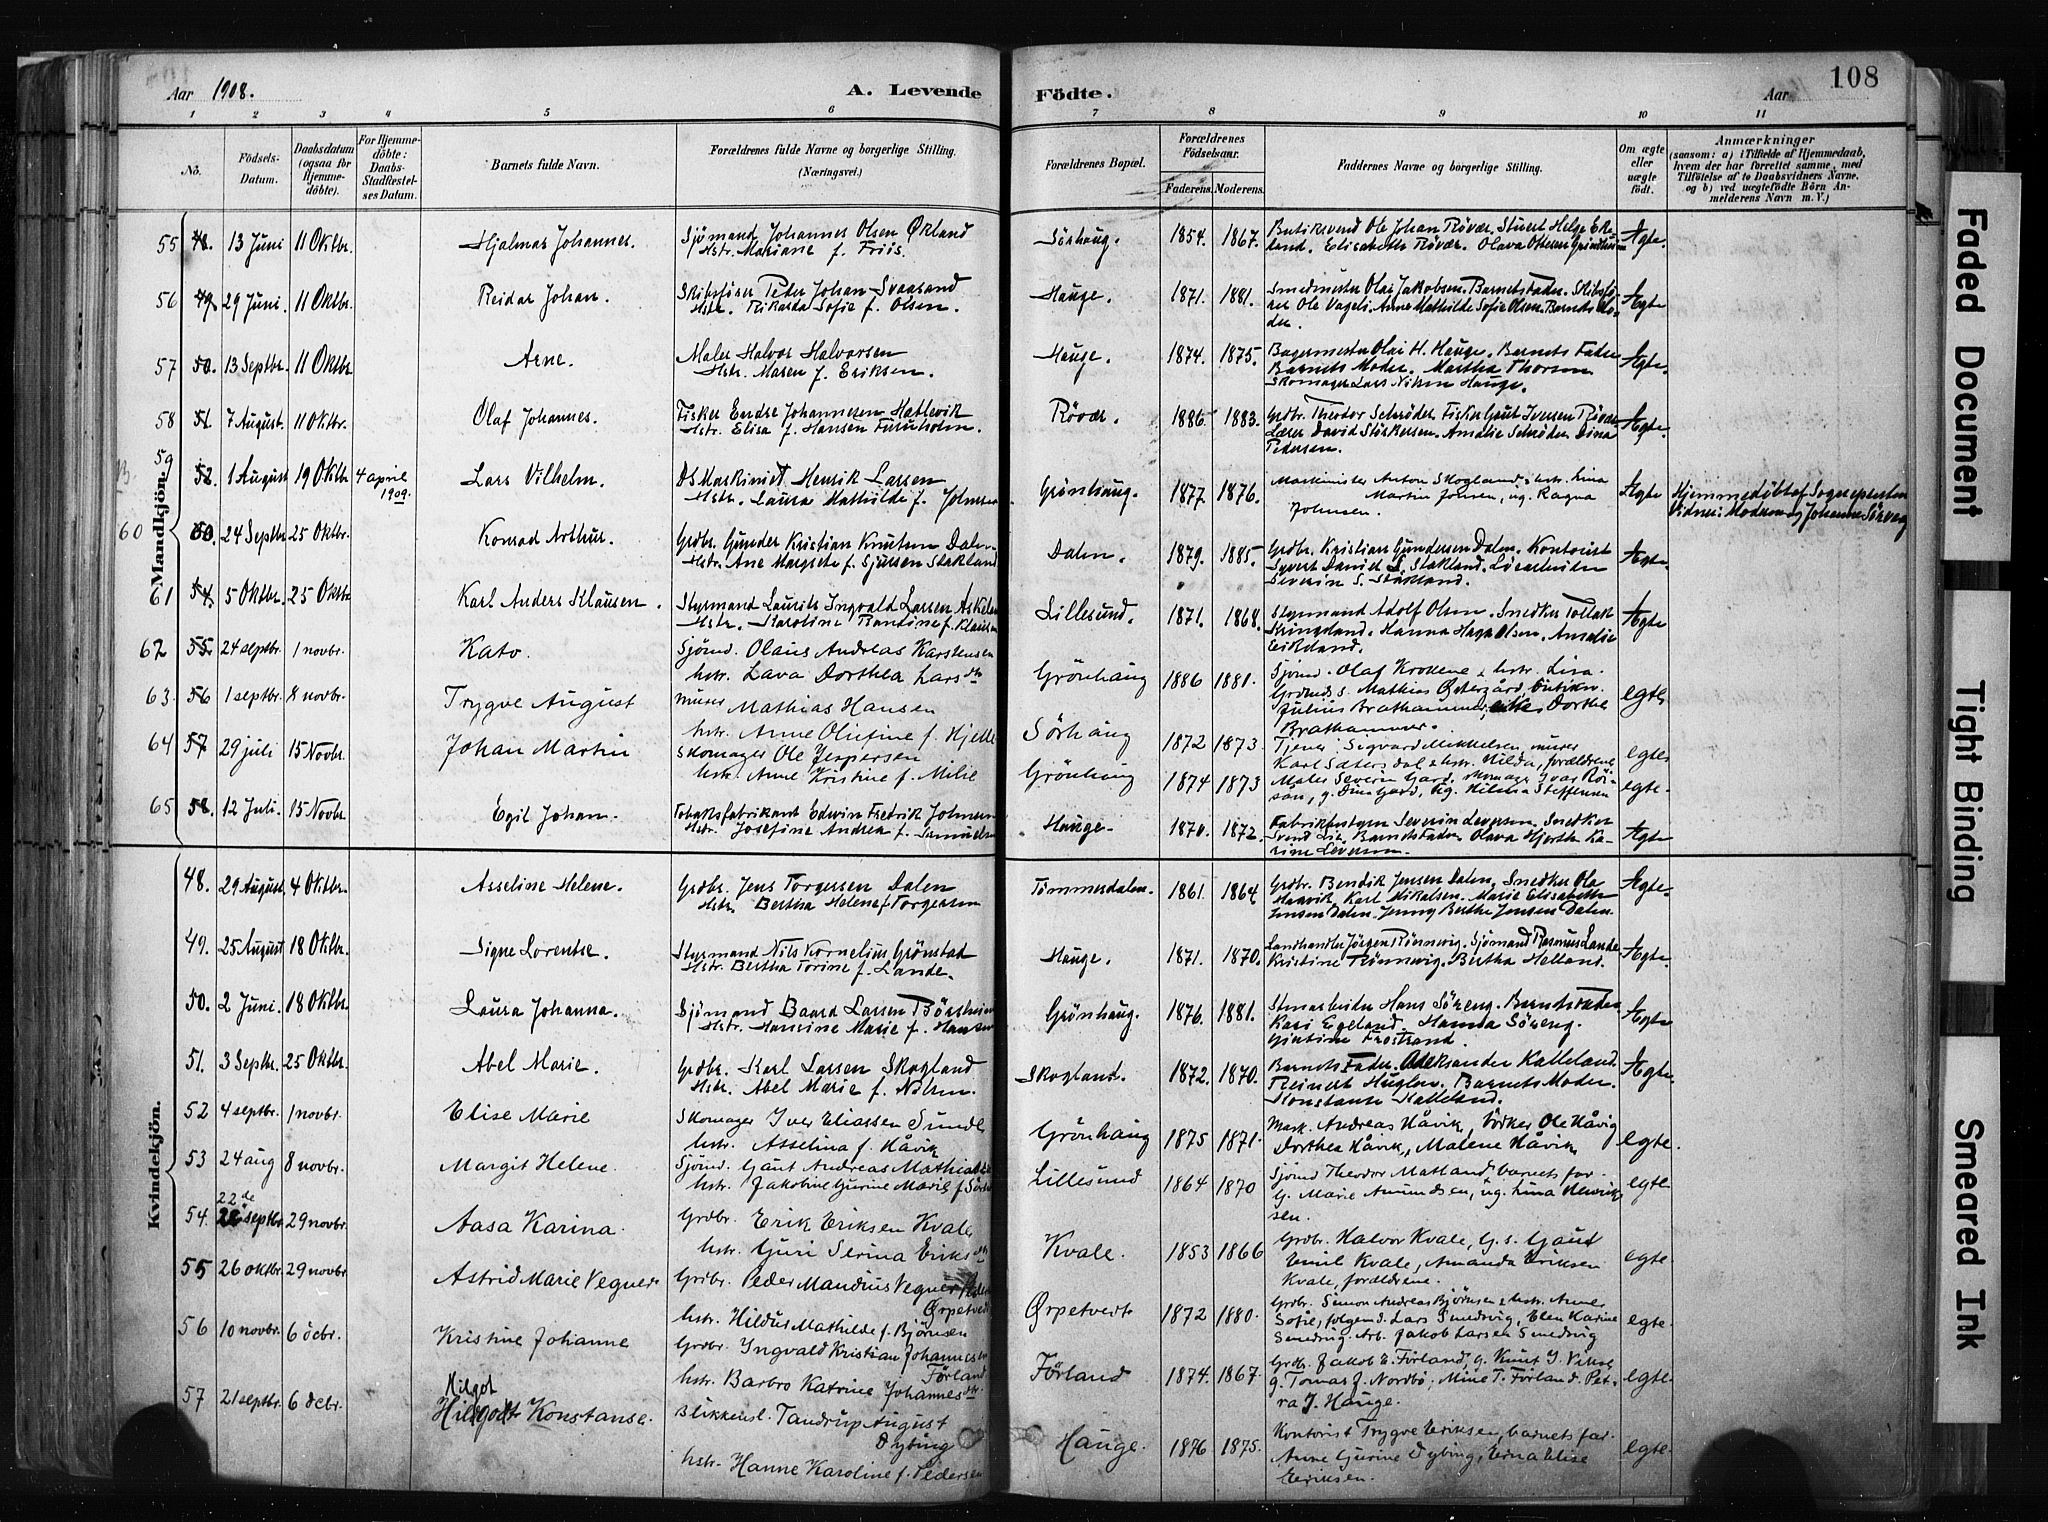 Aar 1908.
A. Levende Födte.
Aar
108
1 2 3 4 5 6 7 8 9 10 11
No.
Födsels-Datum.
Daabsdatum (ogsaa for Hjemme-döbte).
For Hjemme-döbte: Daabs-Stadfæstel-ses Datum.
Barnets fulde Navn.
Forældrenes fulde Navne og borgerlige Stilling. (Næringsvei.)
Forældrenes Bopæl.
Forældrenes Födselsaar.
Faderens. Moderens.
Faddernes Navne og borgerlige Stilling.
Om ægte eller uægte födt.
Anmærkninger
(saasom: a) i Tilfælde af Hjemmedaab, hvem der har forrettet samme, med Tilföielse af to Daabsvidners Navne, og b) ved uægtefödte Börn Anmelderens Navn m. V.)
Mandkjön.
55 48. 13 Juni 11 Oktbr. Hjalmar Johannes. Sjömand Johannes Olsen Økland
Hstr. Mariane f. Friis. Sörhaug. 1854. 1867. Ægte.
56 49. 29 Juni. 11 Oktbr. Reidar Johan. Skibsförer Peder Johan Svaasand
Hstr. Rikarda Sofie f. Olsen. Hauge. 1871. 1881. Ægte
57 50. 13 Septbr. 11 Oktbr Arne. Maler Halvor Halvorsen
Hstr. Maren f. Eriksen. Hauge. 1874. 1875. Bagermester Olai H. Hauge. Barnets Fader
Barnets Moder. Martha Thorsen
Skomager Lars Nilsen Hauge. Ægte.
58 51. 7 August. 11 Oktbr. Olaf Johannes. Fisker Endre Johannesen Hatlevik
Hstr. Elisa f. Hansen Furuholm. Rövær. 1886. 1883. Grdbr. Theodor Schröder. Fisker Gaut Iversen Rövær
Lærer David Störkersen. Amalie Schröder. Dina
Pedersen. Ægte.
59 52. 1 August 19 Oktbr 4 april 1909. Lars Vilhelm. DS Maskinist Henrik Larsen
Hstr. Laura Mathilde f. Johnsen Grönhaug. 1877 1876. Maskinister Anton Skogland & hstr. Lina
Martin Jonsen, ug. Ragna
Johnsen. Ægte Hjemmedöbt af Sognepresten
Vidner: Moderen og Johanne Sörvåg
60 24 Septbr 25 Oktbr. Konrad Arthur. Grdbr. Gunder Kristian Knutsen Dalen
Hstr. Ane Margrete f. Sjursen Stakland. Dalen. 1879. 1885. Grdbr. Kristian Gundersen Dalen. Kontorist
Syvert Daniel S. Stakland.
Severin S. Stakland. Ægte.
61 54. 5 Oktbr. 25 Oktbr Karl Anders Klausen. Styrmand Laurits Ingvald Larsen
Hstr. Karoline f. Klausen Lillesund. 1871. 1868. Styrmand Adolf Olsen. Snedker Tollak
Kringeland. Hanna Olsen. Amalie
Ægte
62 55. 24 septbr. 1 novbr. Kato. Sjömd. Olaus Andreas Karstensen
hstr. Lava Dorthea Larsdtr Grönhaug 1886 1881. Sjömd. Olaf Krokene & hstr. Lina.
Grdmds s. Mathias Östergård,
Julius Brathammer, Dorthe
Brathammer. egte
63. 56 1 septbr. 8 novbr. Trygve August murer Mathias Hansen
hstr. Anne Olufine f. Hjelle Sörhaug 1872 1873. Tjener Sigvard Mikkelsen, murer
Karl Sætersdal & hstr. Hilda, forældrene egte
64 57 29 juli 15 Novbr. Johan Martin Skomager Ole Jespersen
hstr. Anne Kristine f. Milie Grönhaug 1874 1873 Maler Severin Gard, skomager Ivar Röi-
sön, g. Dina Gard, ug. Hilma Steffensen egte.
65 58. 12 Juli. 15 Novbr Egil Johan. Tobaksfabrikant Edwin Fredrik Johnsen
Hstr. Josefine Andrea f. Samuelsen Hauge. 1870. 1872. Severin Severson. Snedker
Svend Lie Barnets Fader. Olava Hjorth. Ka-
rine Severson. Ægte
Kvindekjön.
48. 29 August 4 Oktbr. Asseline Helene. Grdbr. Jens Torgersen Dalen
Hstr. Bertha Helene f. Torgersen Tömmerdalen. 1861. 1864 Grdbr. Bendik Jensen Dalen. Snedker Ola
Haavik. Karl Mikalsen. Marie Elisabeth
Jensen Dalen. Jenny Berthe Jensen Dalen. Ægte.
49. 25 August 18 Oktbr. Signe Lorentse. Styrmand Nils Kornelius Grönstad
Hstr. Bertha Torine f. Lande. Hauge. 1871. 1870. Landhandler Jörgen Rönnevig. Sjömand Rasmus Lande
Kristine Rönnevig. Bertha Helland. Ægte.
50. 2 Juni. 18 Oktbr. Laura Johanna. Sjömand Baard Larsen Börsheim
Hstr. Hansine Marie f. Hansen Grönhaug. 1876. 1881. Stenarbeider Hans Söreng. Barnets Fader
Kari Egeland. Hanna Söreng.
Gjertine Frostrand. Ægte
51. 3 Septbr. 25 Oktbr Abel Marie. Grdbr. Karl Larsen Skogland
Hstr. Abel Marie f. Nilsen. Skogland. 1872. 1870. Barnets Fader. Aleksander Kalleland.
Reinert Huglen. Barnets Moder.
Konstanse Kalleland. Ægte.
52 4 septbr. 1 novbr. Elise Marie Skomager Iver Eliassen Sunde
hstr. Asselina f. Håvik Grönhaug 1875 1871. Mask. Andreas Håvik, Bödker Ole Håvig
Dorthea Håvik, Malene Håvik egte.
53 24 aug 8 novbr. Margit Helene. Sjömd. Gaut Andreas Mathias
hstr. Jakobine Gurine Marie f. Lillesund 1864 1870 Sjömd Theodor Matland, barnets far.
g. Marie Amundsen, ug. Lina Henrik-
sen. egte
54. 22de septbr. 29 novbr. Aasa Karina. Grdbr. Erik Eriksen Kvale
hstr. Guri Serina Eriksdtr Kvale. 1853 1866 Grdbr. Halvor Kvale, g. s. Gaut
Emil Kvale, Amanda Eriksen
Kvale, forældrene. egte.
55 26 oktbr. 29 novbr Astrid Marie Vegner Grdbr. Peder Mandius Vegner
Ørpetvedt
hstr. Hildus Mathilde f. Björnsen Ørpetvedt 1872 1880. Grdbr. Simon Andreas Björnsen & hstr. Anne
Sofie, Lars Smedsvig, Elen Karine
Smedsvig. Arb. Jakob Larsen Smedsvig egte.
56 10 novbr. 6 dcbr. Kristine Johanne Grdbr. Ingvald Kristian Johannesen
Förland
hstr. Barbro Katrine Johannesdtr. Förland 1874. 1867. Grdbr. Jakob E. Förland, g. Knut J. Vikse
g. Tomas J. Nordbö, Mine T. Förland. Pet-
ra J. Hauge. egte.
57 21 septbr. 6 dcbr. Hilgot
Hildgodt Konstanse. Blikkensl. Tandrup August
Dybing
hstr. Hanne Karoline f. Pedersen Hauge. 1876 1875. Kontorist Trygve Eriksen, barnets far.
Anne Gurine Dybing, Erna Elise
Eriksen. egte.
Faded Document
Tight Binding
Smeared Ink